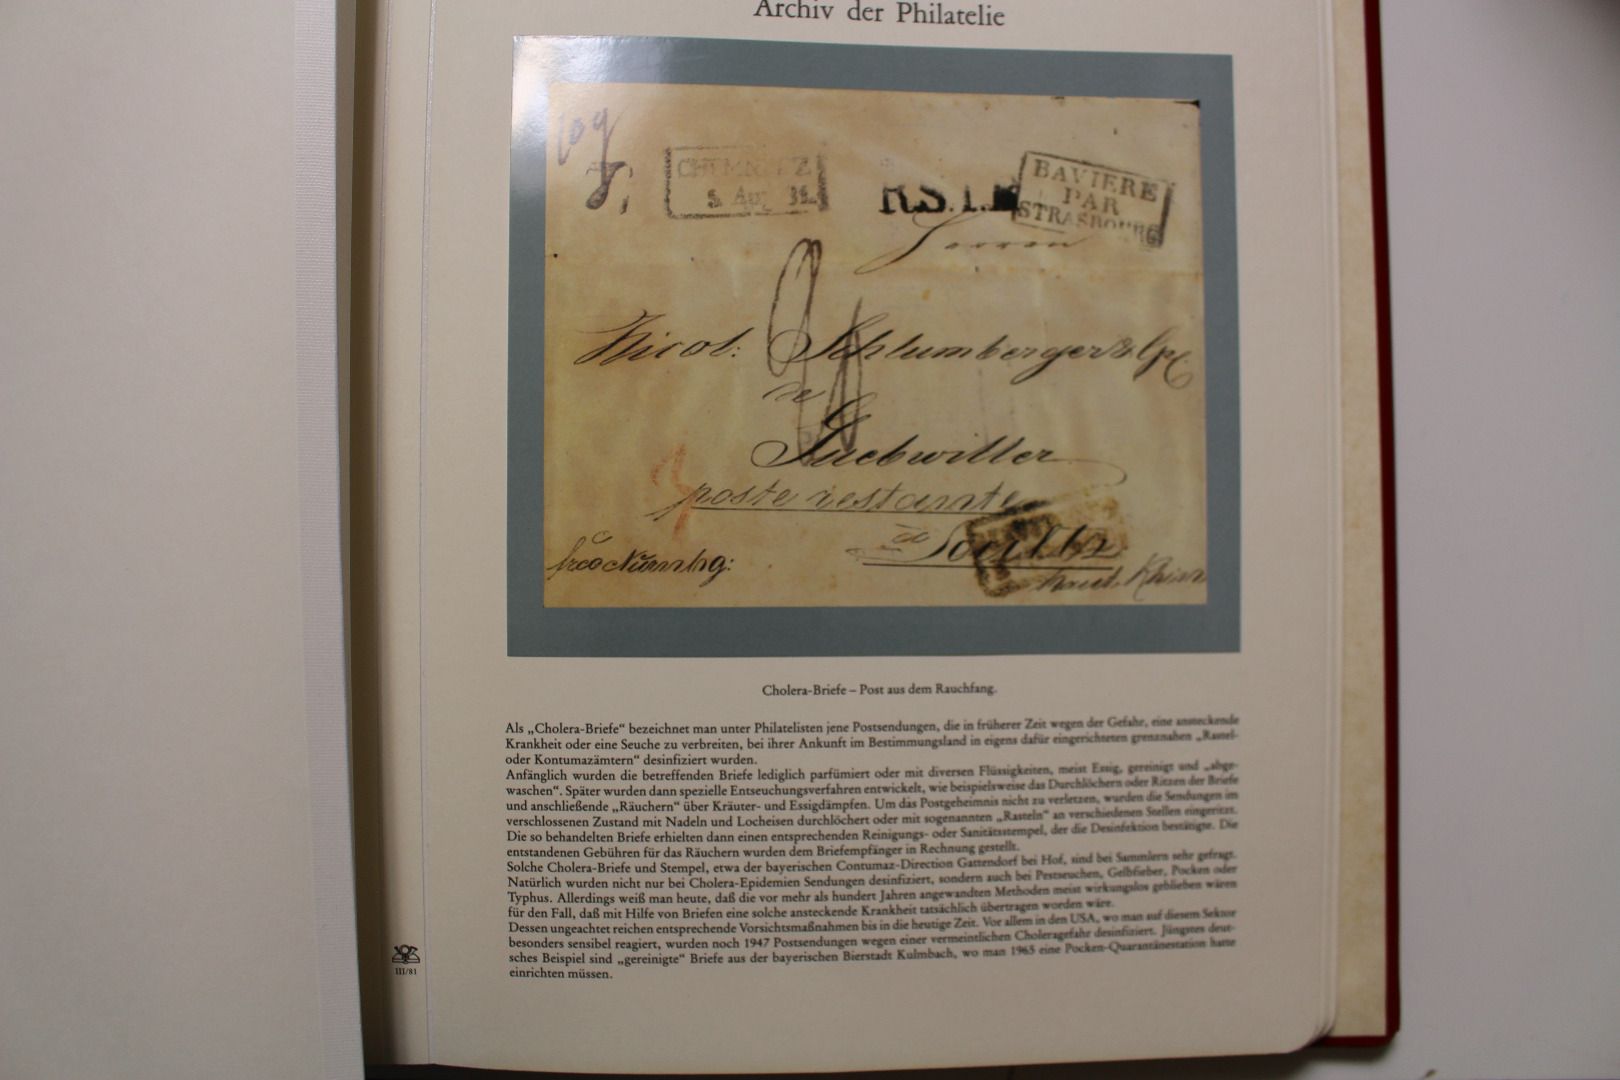 Archiv der Philatelie
109
CHEMNITZ
5. Aug 35.
R.S.1.
BAVIERE
PAR
STRASBOURG
Herren
Nicol: Schlumberger & Cp.
de
Guebwiller
poste restante
à Soultz
frco Nürnbg:
haut Rhin
Cholera-Briefe – Post aus dem Rauchfang.
Als „Cholera-Briefe“ bezeichnet man unter Philatelisten jene Postsendungen, die in früherer Zeit wegen der Gefahr, eine ansteckende
Krankheit oder eine Seuche zu verbreiten, bei ihrer Ankunft im Bestimmungsland in eigens dafür eingerichteten grenznahen „Rastel-
oder Kontumazämtern“ desinfiziert wurden.
Anfänglich wurden die betreffenden Briefe lediglich parfümiert oder mit diversen Flüssigkeiten, meist Essig, gereinigt und „abge-
waschen“. Später wurden dann spezielle Entseuchungsverfahren entwickelt, wie beispielsweise das Durchlöchern oder Ritzen der Briefe
und anschließende „Räuchern“ über Kräuter- und Essigdämpfen. Um das Postgeheimnis nicht zu verletzen, wurden die Sendungen im
verschlossenen Zustand mit Nadeln und Locheisen durchlöchert oder mit sogenannten „Rasteln“ an verschiedenen Stellen eingeritzt.
Die so behandelten Briefe erhielten dann einen entsprechenden Reinigungs- oder Sanitätsstempel, der die Desinfektion bestätigte. Die
entstandenen Gebühren für das Räuchern wurden dem Briefempfänger in Rechnung gestellt.
Solche Cholera-Briefe und Stempel, etwa der bayerischen Contumaz-Direction Gattendorf bei Hof, sind bei Sammlern sehr gefragt.
Natürlich wurden nicht nur bei Cholera-Epidemien Sendungen desinfiziert, sondern auch bei Pestseuchen, Gelbfieber, Pocken oder
Typhus. Allerdings weiß man heute, daß die vor mehr als hundert Jahren angewandten Methoden meist wirkungslos geblieben wären
für den Fall, daß mit Hilfe von Briefen eine solche ansteckende Krankheit tatsächlich übertragen worden wäre.
Dessen ungeachtet reichen entsprechende Vorsichtsmaßnahmen bis in die heutige Zeit. Vor allem in den USA, wo man auf diesem Sektor
besonders sensibel reagiert, wurden noch 1947 Postsendungen wegen einer vermeintlichen Choleragefahr desinfiziert. Jüngstes deut-
sches Beispiel sind „gereinigte“ Briefe aus der bayerischen Bierstadt Kulmbach, wo man 1965 eine Pocken-Quarantänestation hatte
einrichten müssen.
III/81